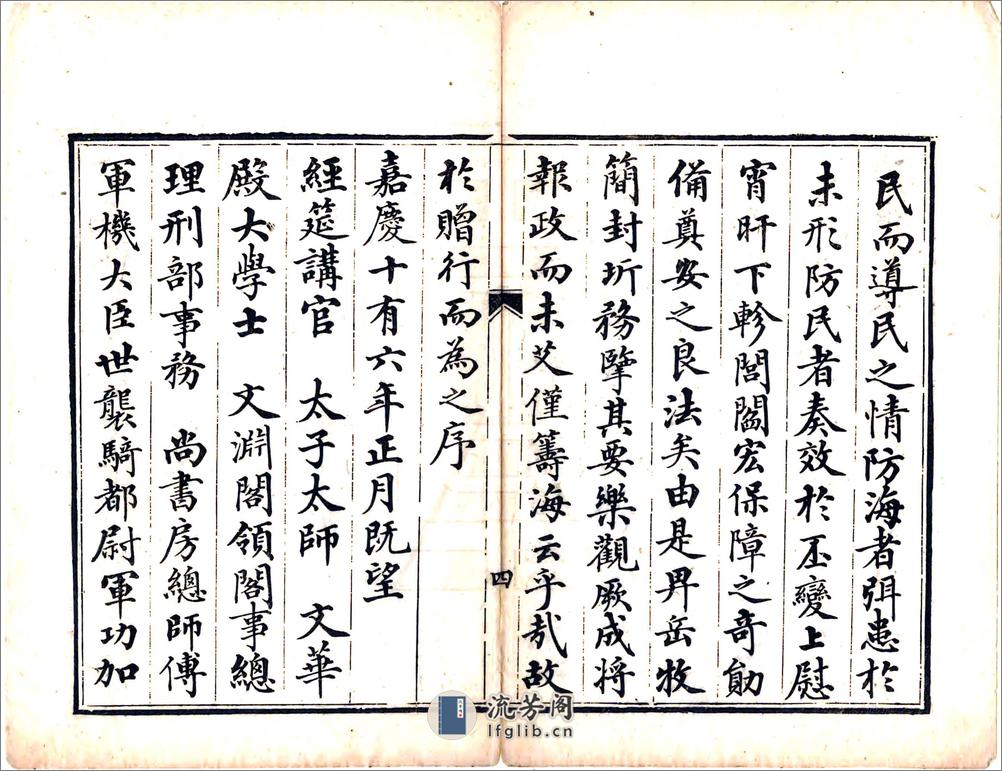 民而導民之情防海者弭患於
未形防民者奏效於丕變上慰
宵旰下軫閭閻宏保障之奇勛
備奠安之良法矣由是畀岳牧
簡封圻務擥其要樂觀厥成將
報政而未艾僅籌海云乎哉故
於贈行而為之序
嘉慶十有六年正月既望
經筵講官 太子太師 文華
殿大學士 文淵閣領閣事總
理刑部事務 尚書房總師傅
軍機大臣世襲騎都尉軍功加
四
流芳阁
lfglib.cn